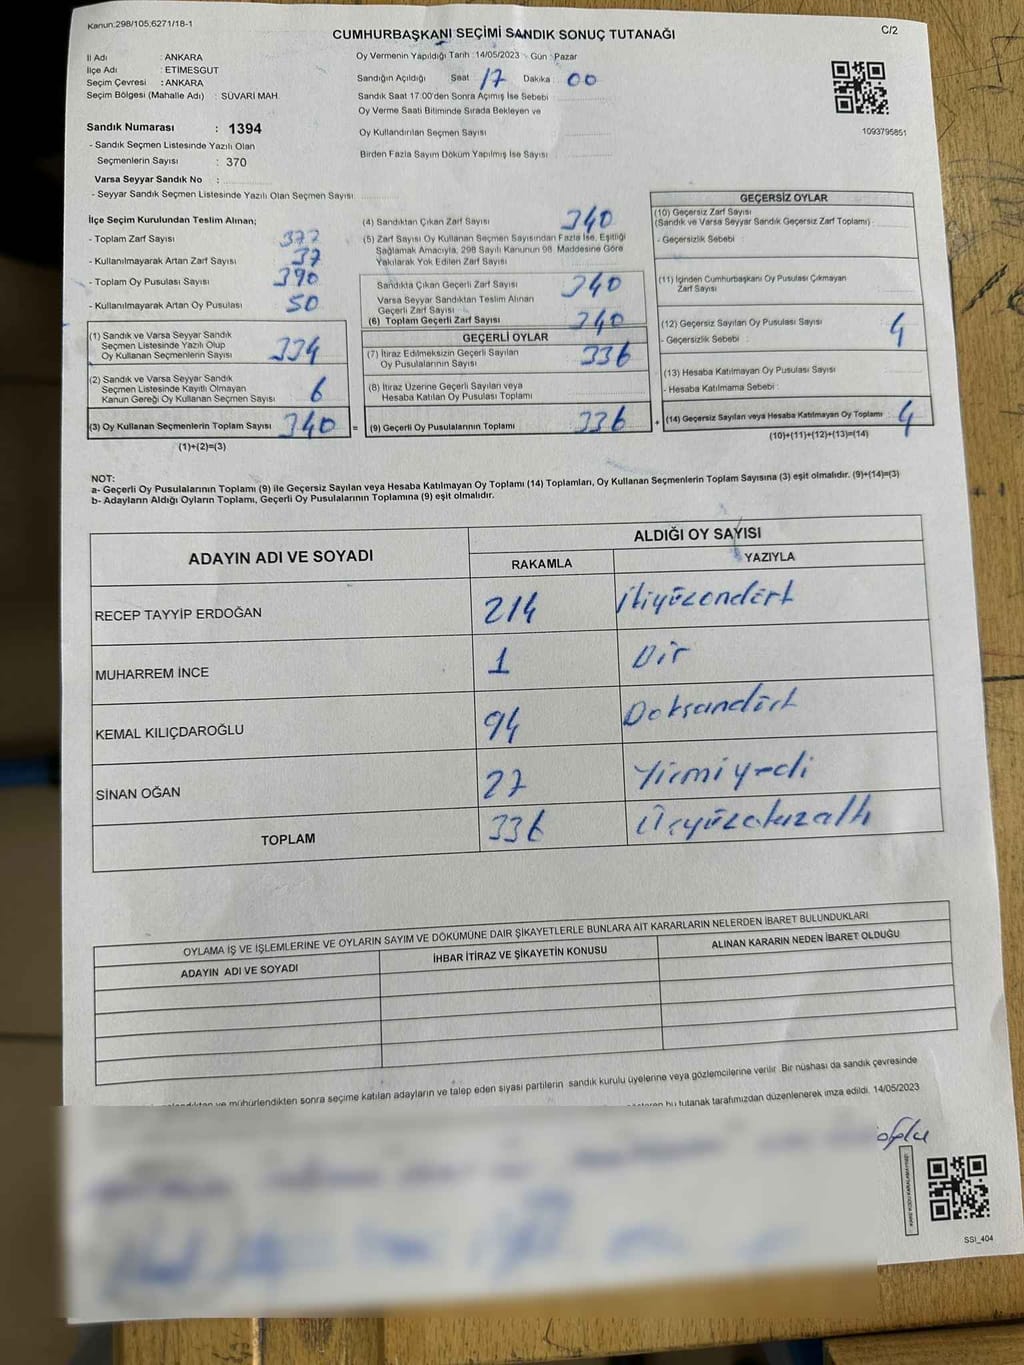 Kanun:298/105,6271/18-1
CUMHURBAŞKANI SEÇİMİ SANDIK SONUÇ TUTANAĞI
C/2
İl Adı : ANKARA
İlçe Adı : ETİMESGUT
Seçim Çevresi : ANKARA
Seçim Bölgesi (Mahalle Adı) : SÜVARİ MAH.
Sandık Numarası : 1394
- Sandık Seçmen Listesinde Yazılı Olan
Seçmenlerin Sayısı : 370
Varsa Seyyar Sandık No :
- Seyyar Sandık Seçmen Listesinde Yazılı Olan Seçmen Sayısı
Oy Vermenin Yapıldığı Tarih : 14/05/2023 - Gün : Pazar
Sandığın Açıldığı Saat 17 Dakika : 00
Sandık Saat 17:00'den Sonra Açımış İse Sebebi
Oy Verme Saati Bitiminde Sırada Bekleyen ve
Oy Kullandırılan Seçmen Sayısı
Birden Fazla Sayım Döküm Yapılmış İse Sayısı
1093795851
İlçe Seçim Kurulundan Teslim Alınan;
- Toplam Zarf Sayısı 377
- Kullanılmayarak Artan Zarf Sayısı 37
- Toplam Oy Pusulası Sayısı 390
- Kullanılmayarak Artan Oy Pusulası 50
(1) Sandık ve Varsa Seyyar Sandık
Seçmen Listesinde Yazılı Olup
Oy Kullanan Seçmenlerin Sayısı 334
(2) Sandık ve Varsa Seyyar Sandık
Seçmen Listesinde Kayıtlı Olmayan
Kanun Gereği Oy Kullanan Seçmen Sayısı 6
(3) Oy Kullanan Seçmenlerin Toplam Sayısı 340
(1)+(2)=(3)
(4) Sandıktan Çıkan Zarf Sayısı 340
(5) Zarf Sayısı Oy Kullanan Seçmen Sayısından Fazla İse, Eşitliği
Sağlamak Amacıyla, 298 Sayılı Kanunun 98. Maddesine Göre
Yakılarak Yok Edilen Zarf Sayısı
Sandıkta Çıkan Geçerli Zarf Sayısı 340
Varsa Seyyar Sandıktan Teslim Alınan
Geçerli Zarf Sayısı
(6) Toplam Geçerli Zarf Sayısı 340
GEÇERLİ OYLAR
(7) İtiraz Edilmeksizin Geçerli Sayılan
Oy Pusulalarının Sayısı 336
(8) İtiraz Üzerine Geçerli Sayılan veya
Hesaba Katılan Oy Pusulası Toplamı
= (9) Geçerli Oy Pusulalarının Toplamı 336 +
GEÇERSİZ OYLAR
(10) Geçersiz Zarf Sayısı
(Sandık ve Varsa Seyyar Sandık Geçersiz Zarf Toplamı)
- Geçersizlik Sebebi
(11) İçinden Cumhurbaşkanı Oy Pusulası Çıkmayan
Zarf Sayısı
(12) Geçersiz Sayılan Oy Pusulası Sayısı 4
- Geçersizlik Sebebi :
(13) Hesaba Katılmayan Oy Pusulası Sayısı
- Hesaba Katılmama Sebebi :
(14) Geçersiz Sayılan veya Hesaba Katılmayan Oy Toplamı 4
(10)+(11)+(12)+(13)=(14)
NOT:
a- Geçerli Oy Pusulalarının Toplamı (9) ile Geçersiz Sayılan veya Hesaba Katılmayan Oy Toplamı (14) Toplamları, Oy Kullanan Seçmenlerin Toplam Sayısına (3) eşit olmalıdır. (9)+(14)=(3)
b- Adayların Aldığı Oyların Toplamı, Geçerli Oy Pusulalarının Toplamına (9) eşit olmalıdır.
ADAYIN ADI VE SOYADI
ALDIĞI OY SAYISI
RAKAMLA YAZIYLA
RECEP TAYYİP ERDOĞAN 214 ikiyüzondört
MUHARREM İNCE 1 Bir
KEMAL KILIÇDAROĞLU 94 Doksandört
SİNAN OĞAN 27 Yirmiyedi
TOPLAM 336 Üçyüzotuzaltı
OYLAMA İŞ VE İŞLEMLERİNE VE OYLARIN SAYIM VE DÖKÜMÜNE DAİR ŞİKAYETLERLE BUNLARA AİT KARARLARIN NELERDEN İBARET BULUNDUKLARI
ADAYIN ADI VE SOYADI İHBAR İTİRAZ VE ŞİKAYETİN KONUSU ALINAN KARARIN NEDEN İBARET OLDUĞU
ve mühürlendikten sonra seçime katılan adayların ve talep eden siyasi partilerin sandık kurulu üyelerine veya gözlemcilerine verilir. Bir nüshası da sandık çevresinde
bu tutanak tarafımızdan düzenlenerek imza edildi. 14/05/2023
SSI_404